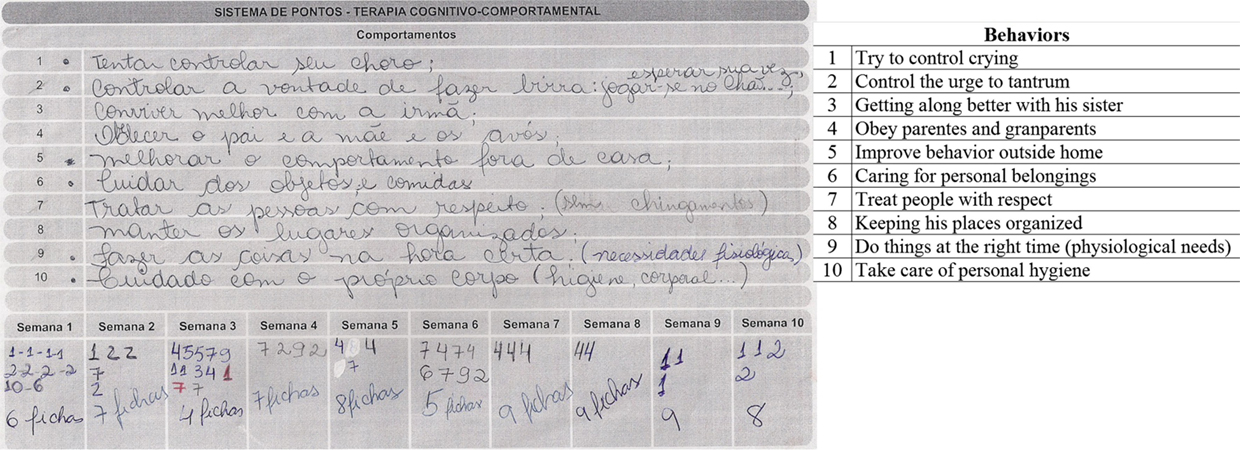 SISTEMA DE PONTOS - TERAPIA COGNITIVO-COMPORTAMENTAL
Comportamentos
1 • Tentar controlar seu choro;
esperar sua vez,
2 • Controlar a vontade de fazer birra: jogar-se no chão...;
3 Conviver melhor com a irmã;
4 Obedecer o pai e a mãe e os avós;
5 • melhorar o comportamento fora de casa;
6 • Cuidar dos objetos, e comidas
7 Tratar as pessoas com respeito. (sem chingamentos)
8 manter os lugares organizados.
9 • fazer as coisas na hora certa. (necessidades fisiológicas)
10 • Cuidado com o próprio corpo (higiene, corporal...)
Semana 1 Semana 2 Semana 3 Semana 4 Semana 5 Semana 6 Semana 7 Semana 8 Semana 9 Semana 10
1-1-1-1 122 45579 7292 4 4 7474 444 44 11 112
2-2-2-2 7 11341 7 6792 1 2
10-6 2 77
6 fichas 7 fichas 4 fichas 7 fichas 8 fichas 5 fichas 9 fichas 9 fichas 9 8
Behaviors
1 Try to control crying
2 Control the urge to tantrum
3 Getting along better with his sister
4 Obey parentes and granparents
5 Improve behavior outside home
6 Caring for personal belongings
7 Treat people with respect
8 Keeping his places organized
9 Do things at the right time (physiological needs)
10 Take care of personal hygiene